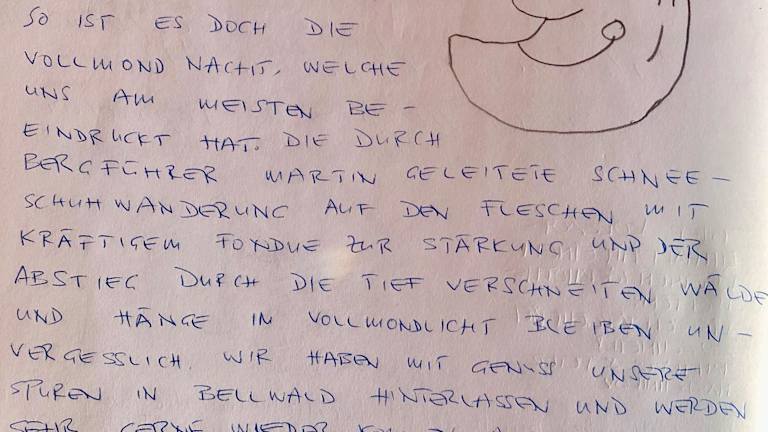 SO IST ES DOCH DIE
VOLLMOND NACHT, WELCHE
UNS AM MEISTEN BE-
EINDRUCKT HAT. DIE DURCH
BERGFÜHRER MARTIN GELEITETE SCHNEE-
SCHUHWANDERUNG AUF DEN FLESCHEN MIT
KRÄFTIGEM FONDUE ZUR STÄRKUNG UND DER
ABSTIEG DURCH DIE TIEF VERSCHNEITEN WÄLDE
UND HÄNGE IN VOLLMONDLICHT BLEIBEN UN-
VERGESSLICH. WIR HABEN MIT GENUSS UNSERE
SPUREN IN BELLWALD HINTERLASSEN UND WERDEN
SEHR GERNE WIEDER